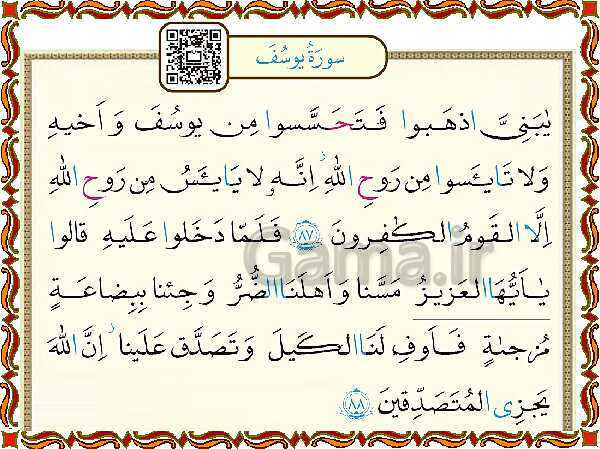 سورَةُ يوسُفَ
يٰبَنِىَّ اذهَبوا فَتَحَسَّسوا مِن يوسُفَ وَ اَخيهِ
وَلا تَايئَسوا مِن رَوحِ اللهِ ۖ اِنَّهٗ لا يَايئَسُ مِن رَوحِ اللهِ
اِلَّا القَومُ الكٰفِرونَ ﴿٨٧﴾ فَلَمّا دَخَلوا عَلَيهِ قالوا
يٰاَيُّهَا العَزيزُ مَسَّنا وَ اَهلَنَا الضُّرُّ وَ جِئنا بِبِضاعَةٍ
مُزجىٰةٍ فَاَوفِ لَنَا الكَيلَ وَ تَصَدَّق عَلَينا ۖ اِنَّ اللهَ
يَجزِى المُتَصَدِّقينَ ﴿٨٨﴾
Gama.ir